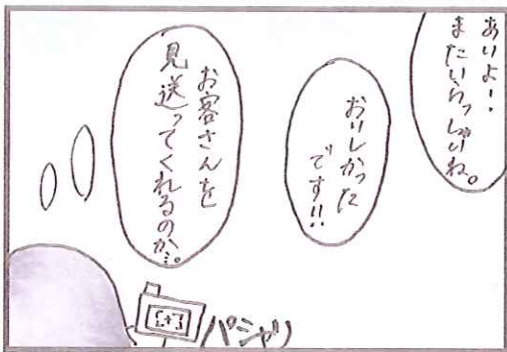 あいよ!
またいらっしゃいね。
おいしかった
です!!
お客さんを
見送ってくれるのか…。
パシャリ